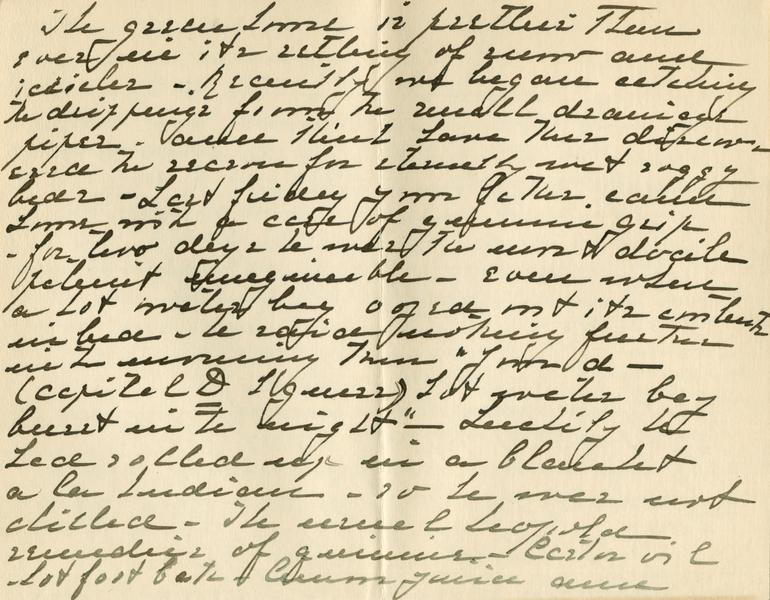 The green house is prettier than
ever in its setting of snow and
icicles - Recently we began catching
the drippings from the small drainage
pipes - and think have thus discov-
ered the reason for eternally wet soggy
beds - Last friday your father came
home with a case of genuine grip
- for two days he was the most docile
patient imagineable - even when
a hot water bag oozed out its contents
in bed - he said nothing further
in the morning than "Your d -
(capital D I guess) hot water bag
burst in the night" - Luckily he
had rolled up in a blanket
a la Indian - so he was not
chilled - The usual Leopold
remedies of quinine - Castor oil
- hot foot bath - lemon juice and